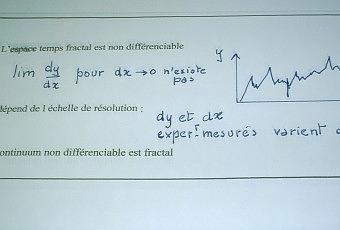 L'espace temps fractal est non différenciable
lim dy/dx pour dx → 0 n'existe pas
y
dépend de l échelle de résolution :
dy et dx
expert mesurés varient
ontinuum non différenciable est fractal